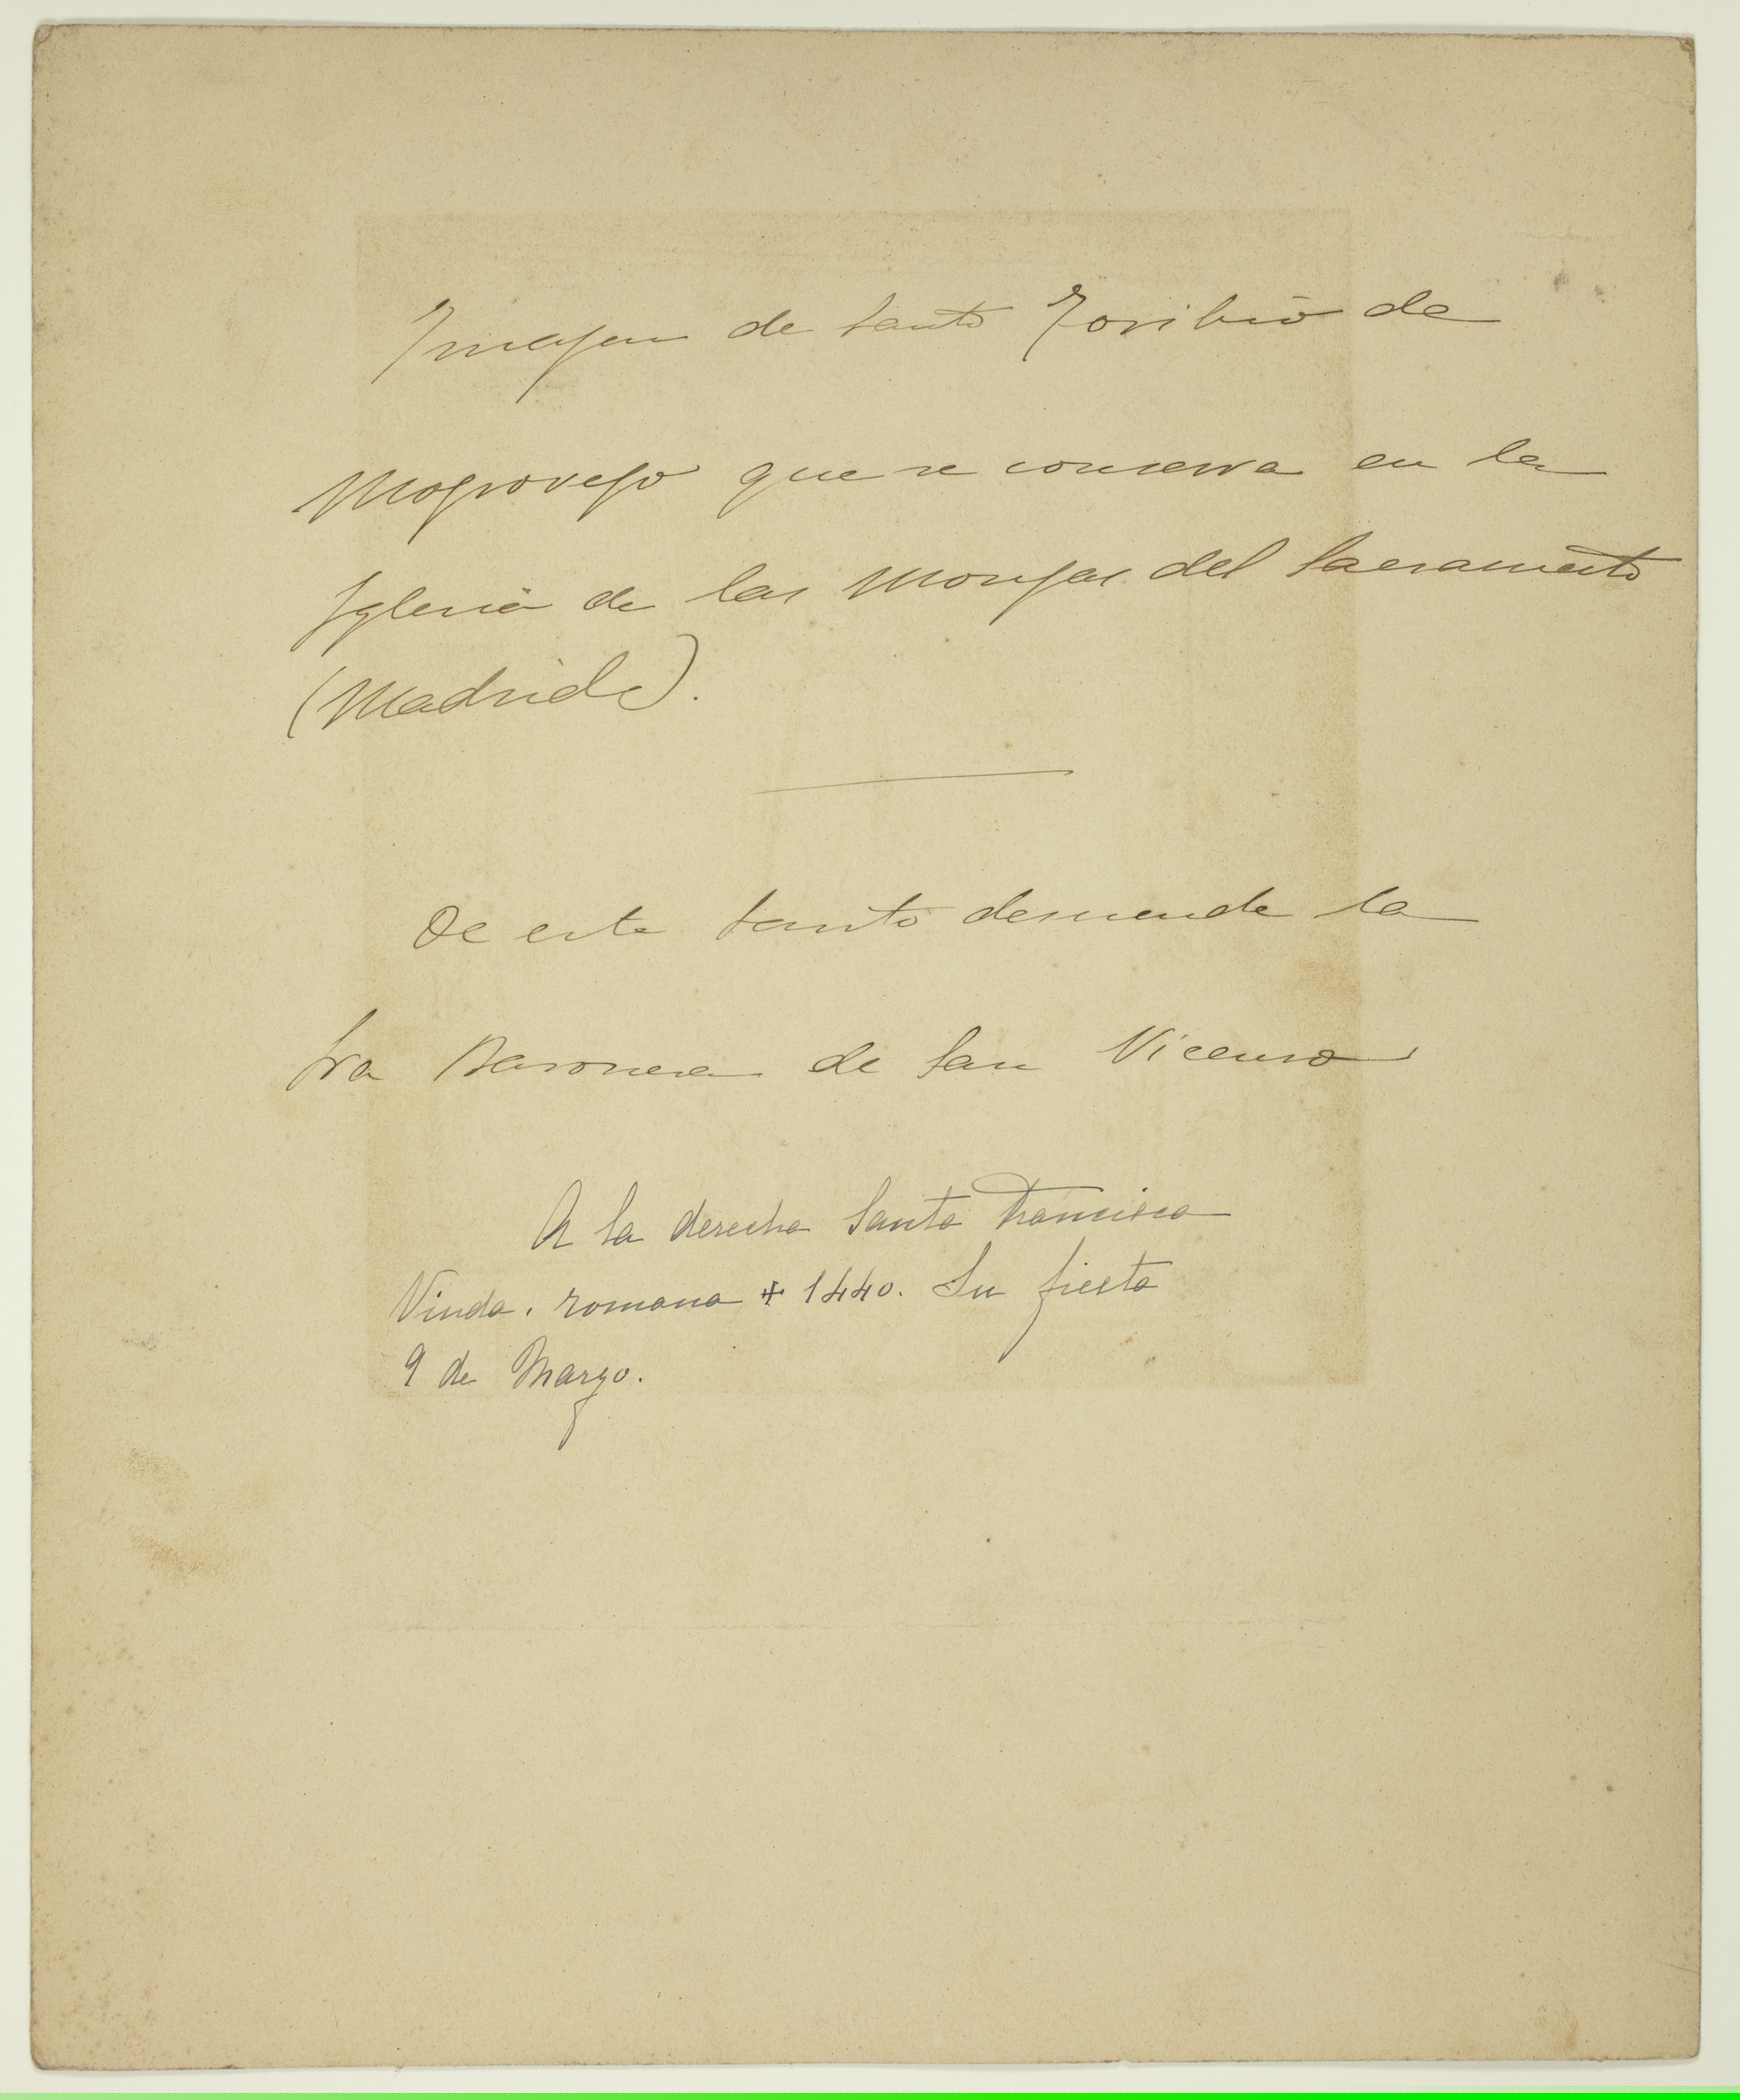 Imajen de Santo Toribio de
Mogrovejo que se conserva en la
Iglesia de las Monjas del Sacramento
(Madrid).
De este Santo desciende la
Sra Baronesa de San Vicenso
A la derecha Santa Francisca
Viuda. romana + 1440. Su fiesta
9 de Marzo.